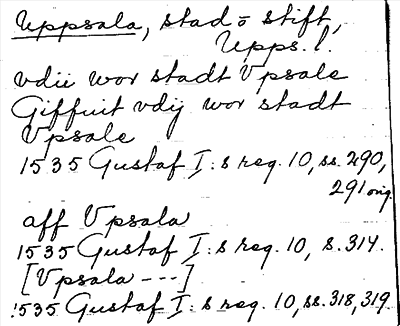 Uppsala, stad o stift,
Upps. l.
vdii wor stadt Vpsale
Giffuit vdij wor stadt
Vpsale
1535 Gustaf I:s reg. 10, ss. 290,
291 orig.
aff Vpsala
1535 Gustaf I:s reg. 10, s. 314.
[Vpsala ---]
1535 Gustaf I:s reg. 10, ss. 318, 319.